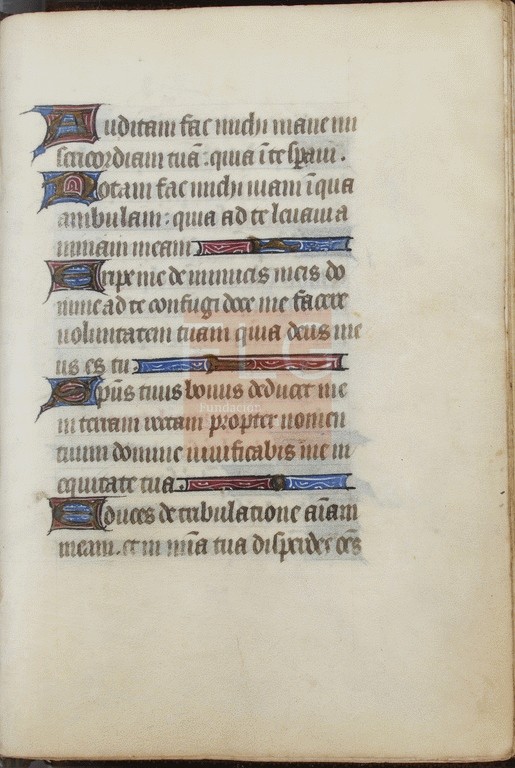 Auditam fac michi mane mi
sericordiam tuā : quia ī te spaui .
Notam fac michi uiam ī qua
ambulam : quia ad te leuaui a
nimam meam
Eripe me de inimicis meis do
mine ad te confugi doce me facere
uoluntatem tuam quia deus me
us es tu .
Sp̄us tuus bonus deducet me
in terram rectam propter nomen
tuum domine uiuificabis me in
equitate tua .
Educes de tribulatione aīam
meam . et in mīa tua disperdes oēs
Fundación